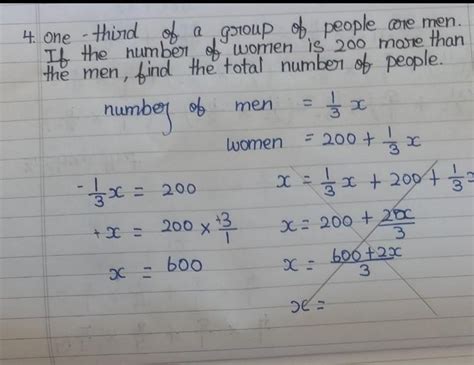 4. One-third of a group of people are men.
If the number of women is 200 more than
the men, find the total number of people.
number of men = 1/3 x
women = 200 + 1/3 x
- 1/3 x = 200
x = 1/3 x + 200 + 1/3 x
+ x = 200 × +3/1
x = 200 + 2x/3
x = 600
x = 600 + 2x/3
x =